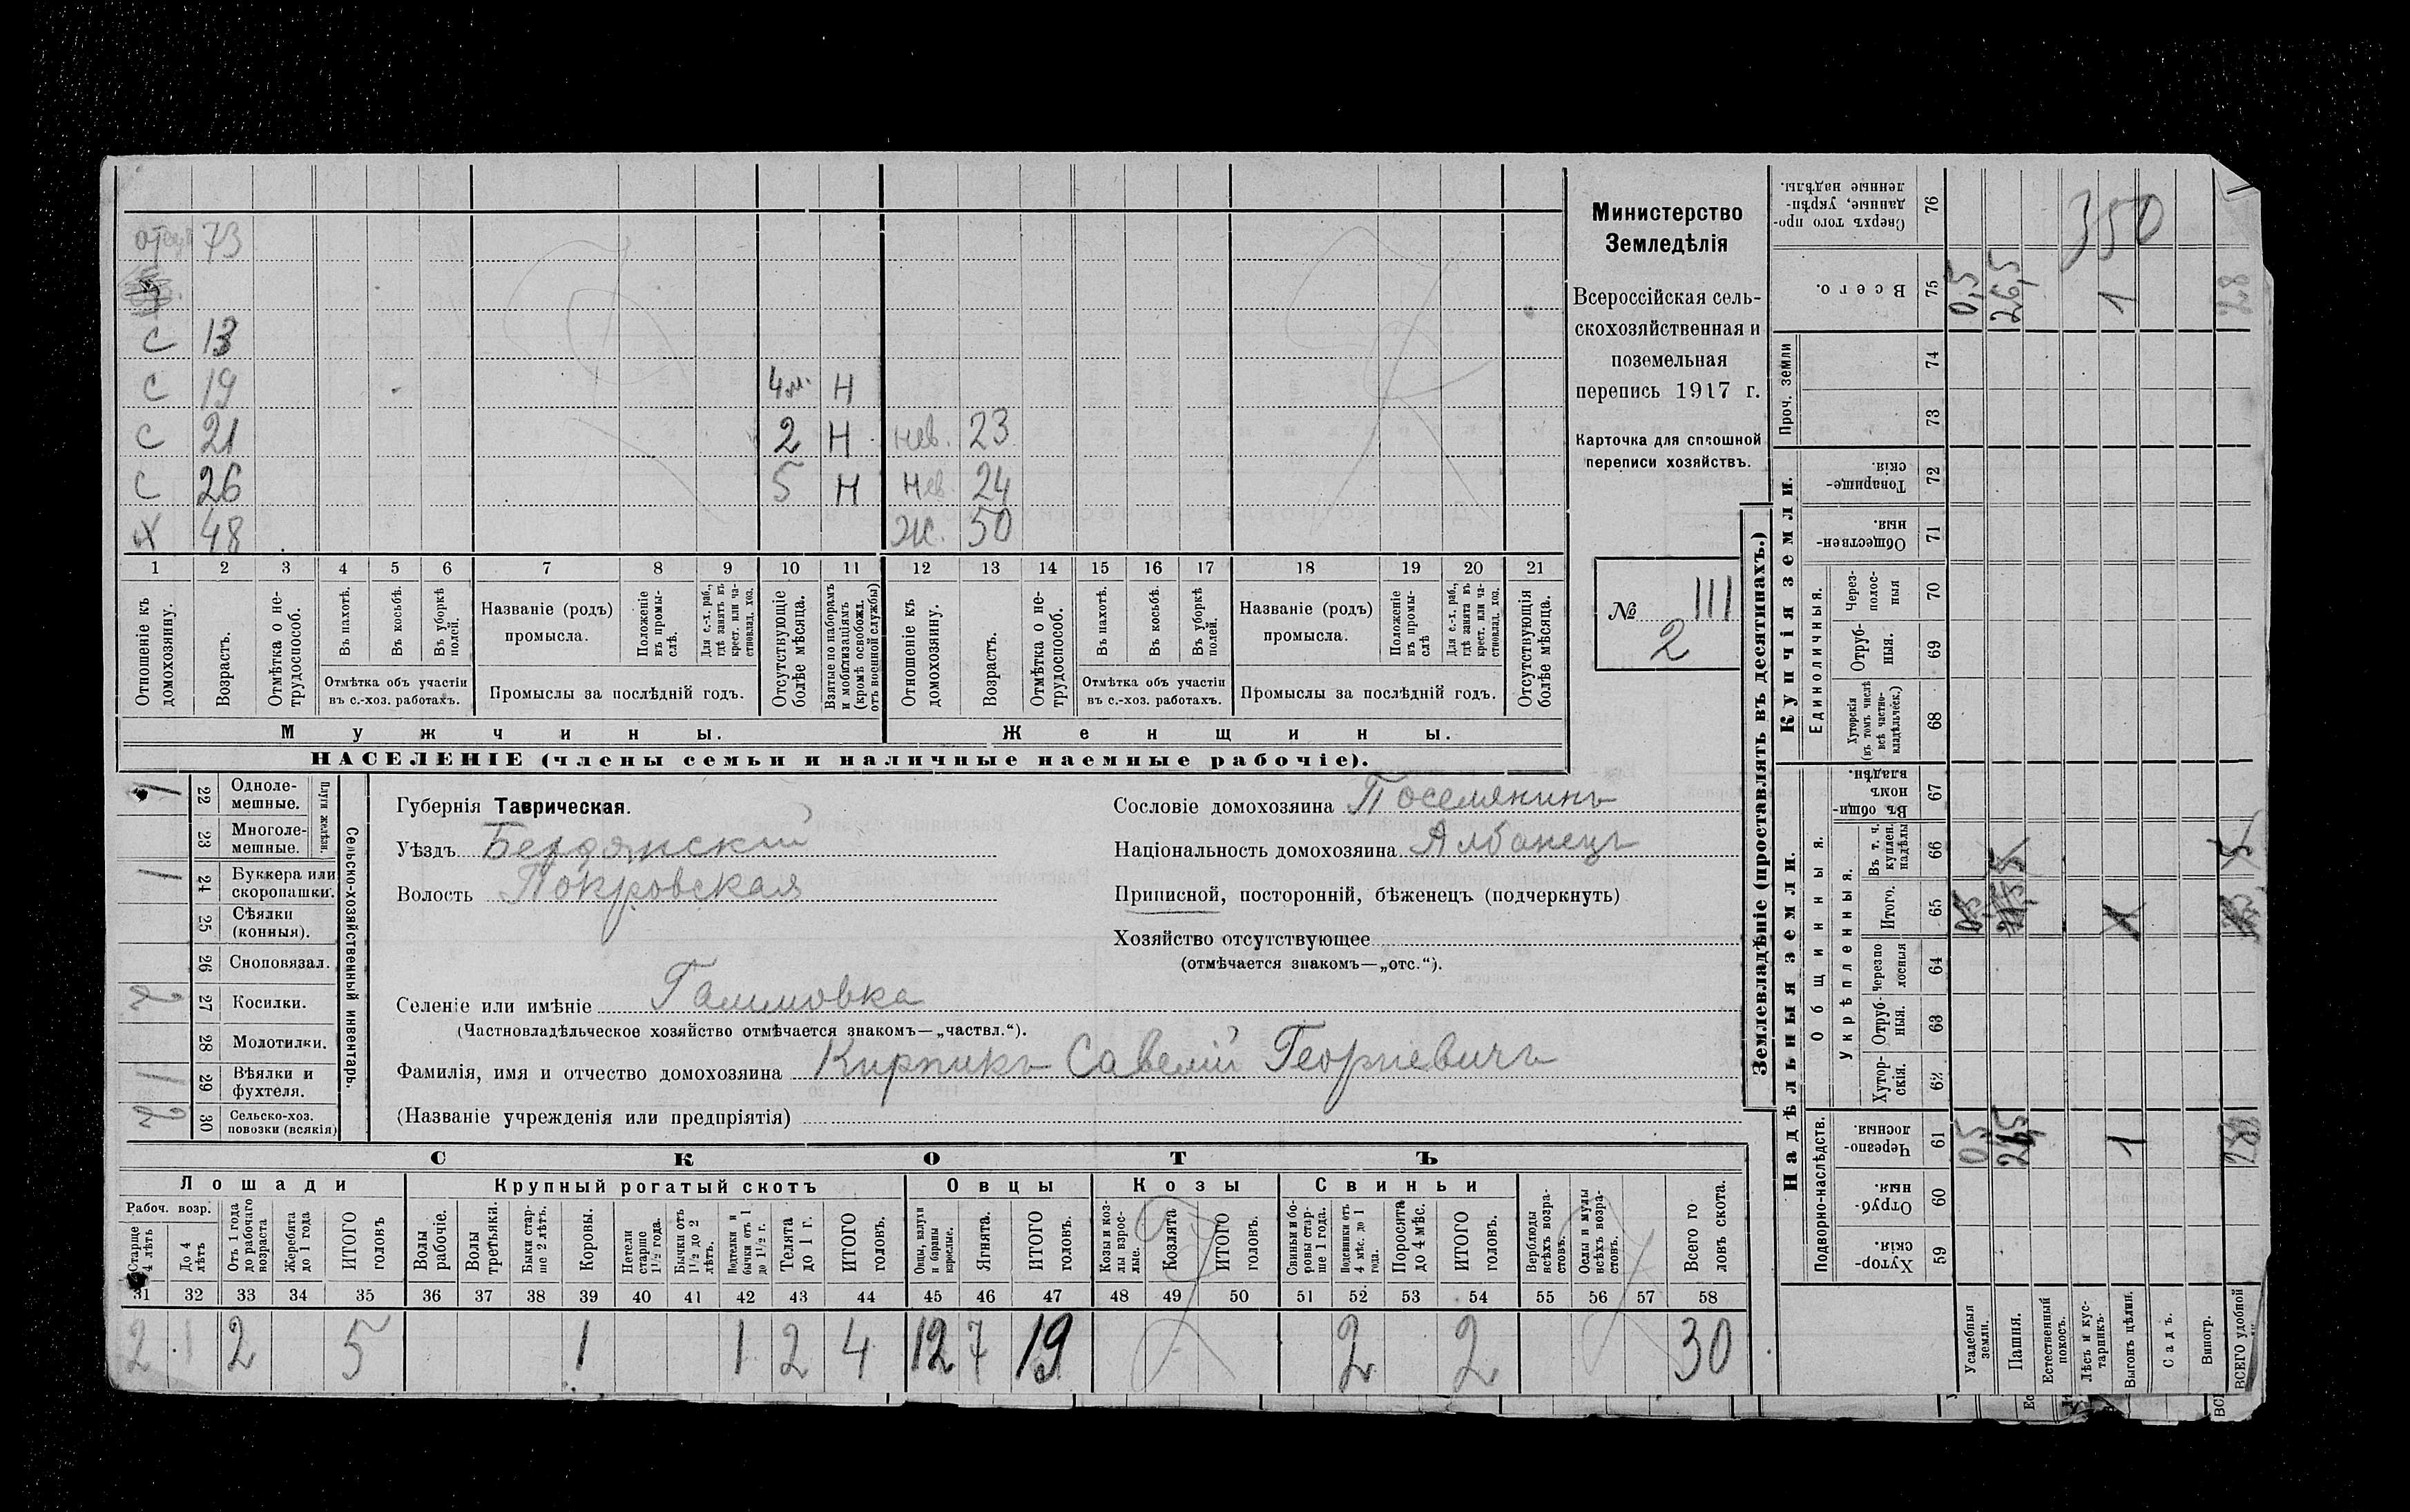 отецъ 73
С 13
С 19 4м. Н
С 21 2 Н нев. 23
С 26 5 Н нев. 24
Х 48 Ж. 50
1 2 3 4 5 6 7 8 9 10 11 12 13 14 15 16 17 18 19 20 21
Отношеніе къ домохозяину.
Возрастъ.
Отмѣтка о не-трудоспособ.
Въ пахотѣ.
Въ косьбѣ.
Въ уборкѣ полей.
Отмѣтка объ участіи въ с.-хоз. работахъ.
Названіе (родъ) промысла.
Положеніе въ промы-слѣ.
Для с.-х. раб., гдѣ занятъ въ крест. или ча-стновлад. хоз.
Промыслы за послѣдній годъ.
Отсутствующіе болѣе мѣсяца.
Взятые по наборамъ и мобилизаціямъ (кромѣ освобожд. отъ военной службы)
Отношеніе къ домохозяину.
Возрастъ.
Отмѣтка о не-трудоспособ.
Въ пахотѣ.
Въ косьбѣ.
Въ уборкѣ полей.
Отмѣтка объ участіи въ с.-хоз. работахъ.
Названіе (родъ) промысла.
Положеніе въ промы-слѣ
Для с.-х. раб., гдѣ занята въ крест. или ча-стновлад. хоз.
Промыслы за послѣдній годъ.
Отсутствующія болѣе мѣсяца.
Мужчины.
Женщины.
НАСЕЛЕНІЕ (члены семьи и наличные наемные рабочіе).
Министерство
Земледѣлія
Всероссійская сель-
скохозяйственная и
поземельная
перепись 1917 г.
Карточка для сплошной
переписи хозяйствъ.
№ 111
2
Сельско-хозяйственный инвентарь.
Плуги желѣзн.
1 22 Одноле-мешные.
23 Многоле-мешные.
1 24 Буккера или скоропашки.
25 Сѣялки (конныя).
26 Сноповязал.
2 27 Косилки.
28 Молотилки.
1 29 Вѣялки и фухтеля.
2 30 Сельско-хоз. повозки (всякія)
Губернія Таврическая.
Уѣздъ Бердянскій
Волость Покровская
Сословіе домохозяина Поселянинъ
Національность домохозяина Албанецъ
Приписной, посторонній, бѣженецъ (подчеркнуть)
Хозяйство отсутствующее
(отмѣчается знакомъ—„отс.“).
Селеніе или имѣніе Гаммовка
(Частновладѣльческое хозяйство отмѣчается знакомъ—„частвл.“).
Фамилія, имя и отчество домохозяина Кирпикъ Савелій Георгіевичъ
(Названіе учрежденія или предпріятія)
СКОТЪ
Лошади
Крупный рогатый скотъ
Овцы
Козы
Свиньи
Рабоч. возр.
Старше 4 лѣтъ
До 4 лѣтъ
Отъ 1 года до рабочаго возраста
Жеребята до 1 года
ИТОГО головъ
Волы рабочіе.
Волы третьяки.
Быки стар-ше 2 лѣтъ.
Коровы.
Нетели старше 1½ года.
Бычки отъ 1½ до 2 лѣтъ.
Подтелки и бычки отъ 1 до 1½ г.
Телята до 1 г.
ИТОГО головъ.
Овцы, валухи и бараны взрослые.
Ягнята.
ИТОГО головъ.
Козы и коз-лы взрос-лые.
Козлята
ИТОГО головъ.
Свиньи и бо-ровы стар-ше 1 года.
Подсвинки отъ 4 мѣс. до 1 года.
Поросята до 4 мѣс.
ИТОГО головъ.
Верблюды всѣхъ возра-стовъ.
Ослы и мулы всѣхъ возра-стовъ.
Всего го-ловъ скота.
31 32 33 34 35 36 37 38 39 40 41 42 43 44 45 46 47 48 49 50 51 52 53 54 55 56 57 58
2 1 2 5 1 1 2 4 12 7 19 2 2 30
Землевладѣніе (проставлять въ десятинахъ.)
Надѣльныя земли.
Купчія земли.
Проч. земли
Подворно-наслѣдств.
Общинныя.
Укрѣпленныя.
Единоличныя.
Сверхъ того про-данные, укрѣп-ленные надѣлы. 76 350
Всего. 75 0,5 26,5 1 28
74
73
Товарище-скія. 72
Обществен-ныя. 71
Через-полос-ныя 70
Отруб-ныя. 69
Хуторскія (въ томъ числѣ всѣ частно-владѣльческ.) 68
Въ общин-номъ владѣн. 67
Въ т. ч. куплен. надѣлы 66
Итого. 65
Черезпо-лосныя 64
Отруб-ныя. 63
Хутор-скія. 62
Черезпо-лосныя. 61 0,5 26,5 1 28
Отруб-ныя. 60
Хутор-скія. 59
Усадебныя земли.
Пашня.
Естественный покосъ.
Лѣсъ и кус-тарникъ.
Выгонъ цѣлин.
Садъ.
Виногр.
ВСЕГО удобной